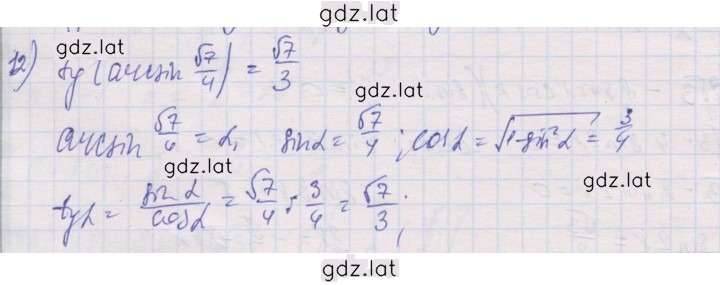 gdz.lat
12) tg(arcsin √7/4) = √7/3
gdz.lat
arcsin √7/4 = α, sinα = √7/4; cosα = √(1-sin²α) = 3/4
gdz.lat gdz.lat
tgα = sinα/cosα = √7/4 : 3/4 = √7/3;
gdz.lat
gdz.lat